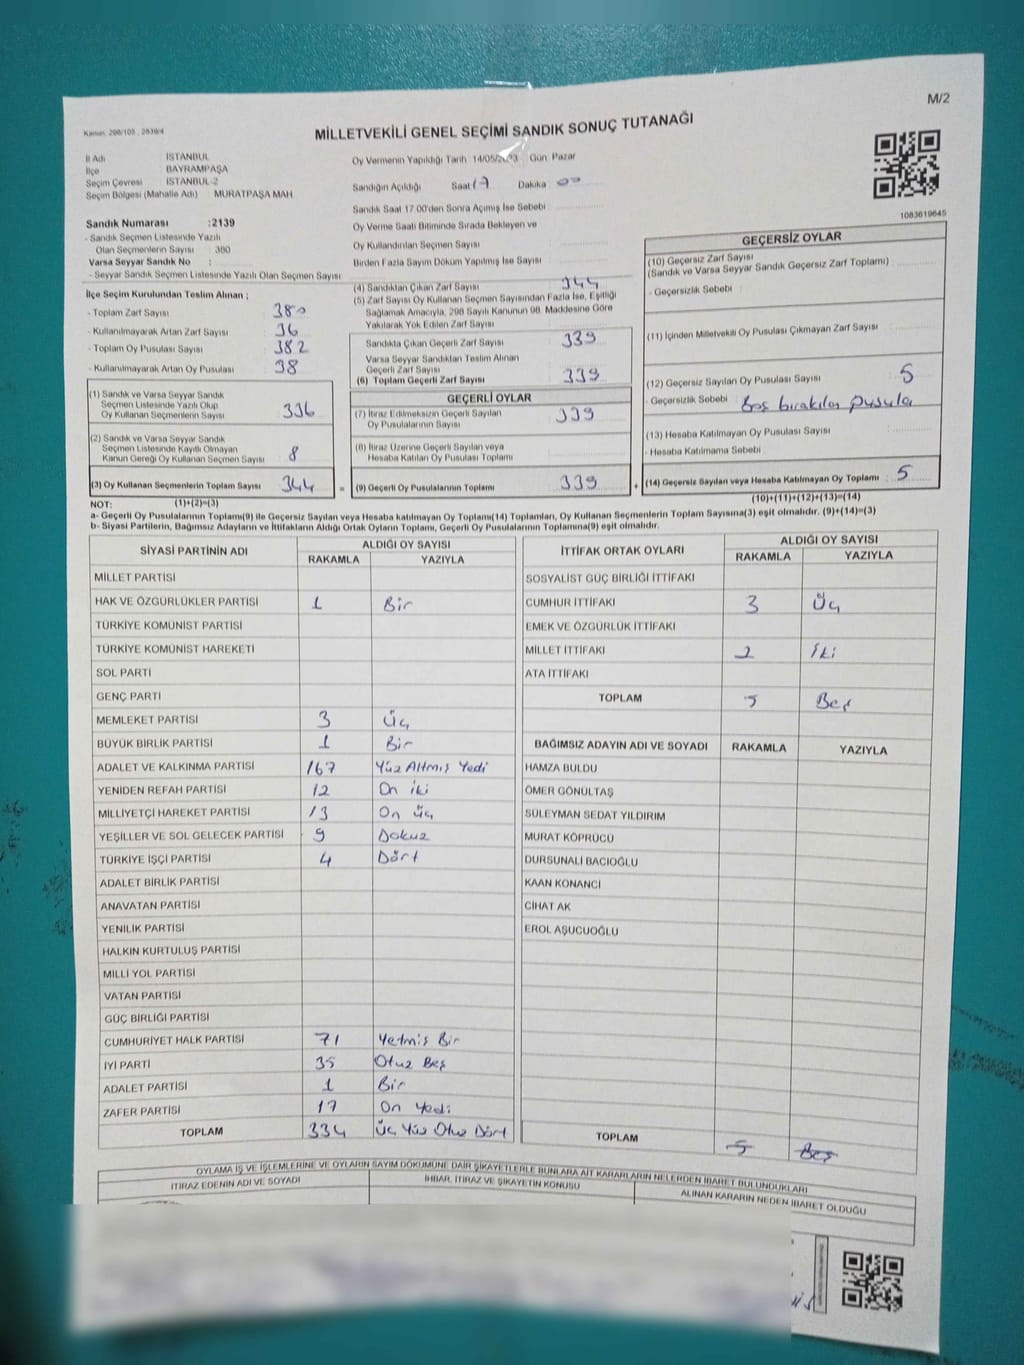 M/2
Kanun: 298/105 , 2839/4
MİLLETVEKİLİ GENEL SEÇİMİ SANDIK SONUÇ TUTANAĞI
İl Adı İSTANBUL
İlçe BAYRAMPAŞA
Seçim Çevresi İSTANBUL-2
Seçim Bölgesi (Mahalle Adı) : MURATPAŞA MAH
Sandık Numarası :2139
- Sandık Seçmen Listesinde Yazılı
Olan Seçmenlerin Sayısı : 360
Varsa Seyyar Sandık No :
- Seyyar Sandık Seçmen Listesinde Yazılı Olan Seçmen Sayısı
Oy Vermenin Yapıldığı Tarih 14/05/ Gün Pazar
Sandığın Açıldığı Saat 17 Dakika 00
Sandık Saat 17.00'den Sonra Açımış İse Sebebi
Oy Verme Saati Bitiminde Sırada Bekleyen ve
Oy Kullandırılan Seçmen Sayısı
Birden Fazla Sayım Döküm Yapılmış İse Sayısı
1083619645
İlçe Seçim Kurulundan Teslim Alınan ;
- Toplam Zarf Sayısı 380
- Kullanılmayarak Artan Zarf Sayısı 36
- Toplam Oy Pusulası Sayısı 382
- Kullanılmayarak Artan Oy Pusulası 38
(1) Sandık ve Varsa Seyyar Sandık
Seçmen Listesinde Yazılı Olup
Oy Kullanan Seçmenlerin Sayısı 336
(2) Sandık ve Varsa Seyyar Sandık
Seçmen Listesinde Kayıtlı Olmayan
Kanun Gereği Oy Kullanan Seçmen Sayısı 8
(3) Oy Kullanan Seçmenlerin Toplam Sayısı 344 =
(4) Sandıktan Çıkan Zarf Sayısı 344
(5) Zarf Sayısı Oy Kullanan Seçmen Sayısından Fazla İse, Eşitliği
Sağlamak Amacıyla, 298 Sayılı Kanunun 98. Maddesine Göre
Yakılarak Yok Edilen Zarf Sayısı
Sandıkta Çıkan Geçerli Zarf Sayısı 339
Varsa Seyyar Sandıktan Teslim Alınan
Geçerli Zarf Sayısı
(6) Toplam Geçerli Zarf Sayısı 339
GEÇERLİ OYLAR
(7) İtiraz Edilmeksizin Geçerli Sayılan
Oy Pusulalarının Sayısı 339
(8) İtiraz Üzerine Geçerli Sayılan veya
Hesaba Katılan Oy Pusulası Toplamı
(9) Geçerli Oy Pusulalarının Toplamı 339 +
GEÇERSİZ OYLAR
(10) Geçersiz Zarf Sayısı
(Sandık ve Varsa Seyyar Sandık Geçersiz Zarf Toplamı)
- Geçersizlik Sebebi :
(11) İçinden Milletvekili Oy Pusulası Çıkmayan Zarf Sayısı
(12) Geçersiz Sayılan Oy Pusulası Sayısı 5
- Geçersizlik Sebebi : Boş bırakılan pusula
(13) Hesaba Katılmayan Oy Pusulası Sayısı
- Hesaba Katılmama Sebebi
(14) Geçersiz Sayılan veya Hesaba Katılmayan Oy Toplamı 5
NOT: (1)+(2)=(3) (10)+(11)+(12)+(13)=(14)
a- Geçerli Oy Pusulalarının Toplamı(9) ile Geçersiz Sayılan veya Hesaba katılmayan Oy Toplamı(14) Toplamları, Oy Kullanan Seçmenlerin Toplam Sayısına(3) eşit olmalıdır. (9)+(14)=(3)
b- Siyasi Partilerin, Bağımsız Adayların ve İttifakların Aldığı Ortak Oyların Toplamı, Geçerli Oy Pusulalarının Toplamına(9) eşit olmalıdır.
SİYASİ PARTİNİN ADI ALDIĞI OY SAYISI
RAKAMLA YAZIYLA
MİLLET PARTİSİ
HAK VE ÖZGÜRLÜKLER PARTİSİ 1 Bir
TÜRKİYE KOMÜNİST PARTİSİ
TÜRKİYE KOMÜNİST HAREKETİ
SOL PARTİ
GENÇ PARTİ
MEMLEKET PARTİSİ 3 Üç
BÜYÜK BİRLİK PARTİSİ 1 Bir
ADALET VE KALKINMA PARTİSİ 167 Yüz Altmış Yedi
YENİDEN REFAH PARTİSİ 12 On iki
MİLLİYETÇİ HAREKET PARTİSİ 13 On üç
YEŞİLLER VE SOL GELECEK PARTİSİ 9 Dokuz
TÜRKİYE İŞÇİ PARTİSİ 4 Dört
ADALET BİRLİK PARTİSİ
ANAVATAN PARTİSİ
YENİLİK PARTİSİ
HALKIN KURTULUŞ PARTİSİ
MİLLİ YOL PARTİSİ
VATAN PARTİSİ
GÜÇ BİRLİĞİ PARTİSİ
CUMHURİYET HALK PARTİSİ 71 Yetmiş Bir
İYİ PARTİ 35 Otuz Beş
ADALET PARTİSİ 1 Bir
ZAFER PARTİSİ 17 On Yedi
TOPLAM 334 Üç Yüz Otuz Dört
İTTİFAK ORTAK OYLARI ALDIĞI OY SAYISI
RAKAMLA YAZIYLA
SOSYALİST GÜÇ BİRLİĞİ İTTİFAKI
CUMHUR İTTİFAKI 3 Üç
EMEK VE ÖZGÜRLÜK İTTİFAKI
MİLLET İTTİFAKI 2 İki
ATA İTTİFAKI
TOPLAM 5 Beş
BAĞIMSIZ ADAYIN ADI VE SOYADI RAKAMLA YAZIYLA
HAMZA BULDU
ÖMER GÖNÜLTAŞ
SÜLEYMAN SEDAT YILDIRIM
MURAT KÖPRÜCÜ
DURSUNALİ BACIOĞLU
KAAN KONANCİ
CİHAT AK
EROL AŞUCUOĞLU
TOPLAM 5 Beş
OYLAMA İŞ VE İŞLEMLERİNE VE OYLARIN SAYIM DÖKÜMÜNE DAİR ŞİKAYETLERLE BUNLARA AİT KARARLARIN NELERDEN İBARET BULUNDUKLARI
İTİRAZ EDENİN ADI VE SOYADI İHBAR, İTİRAZ VE ŞİKAYETİN KONUSU ALINAN KARARIN NEDEN İBARET OLDUĞU